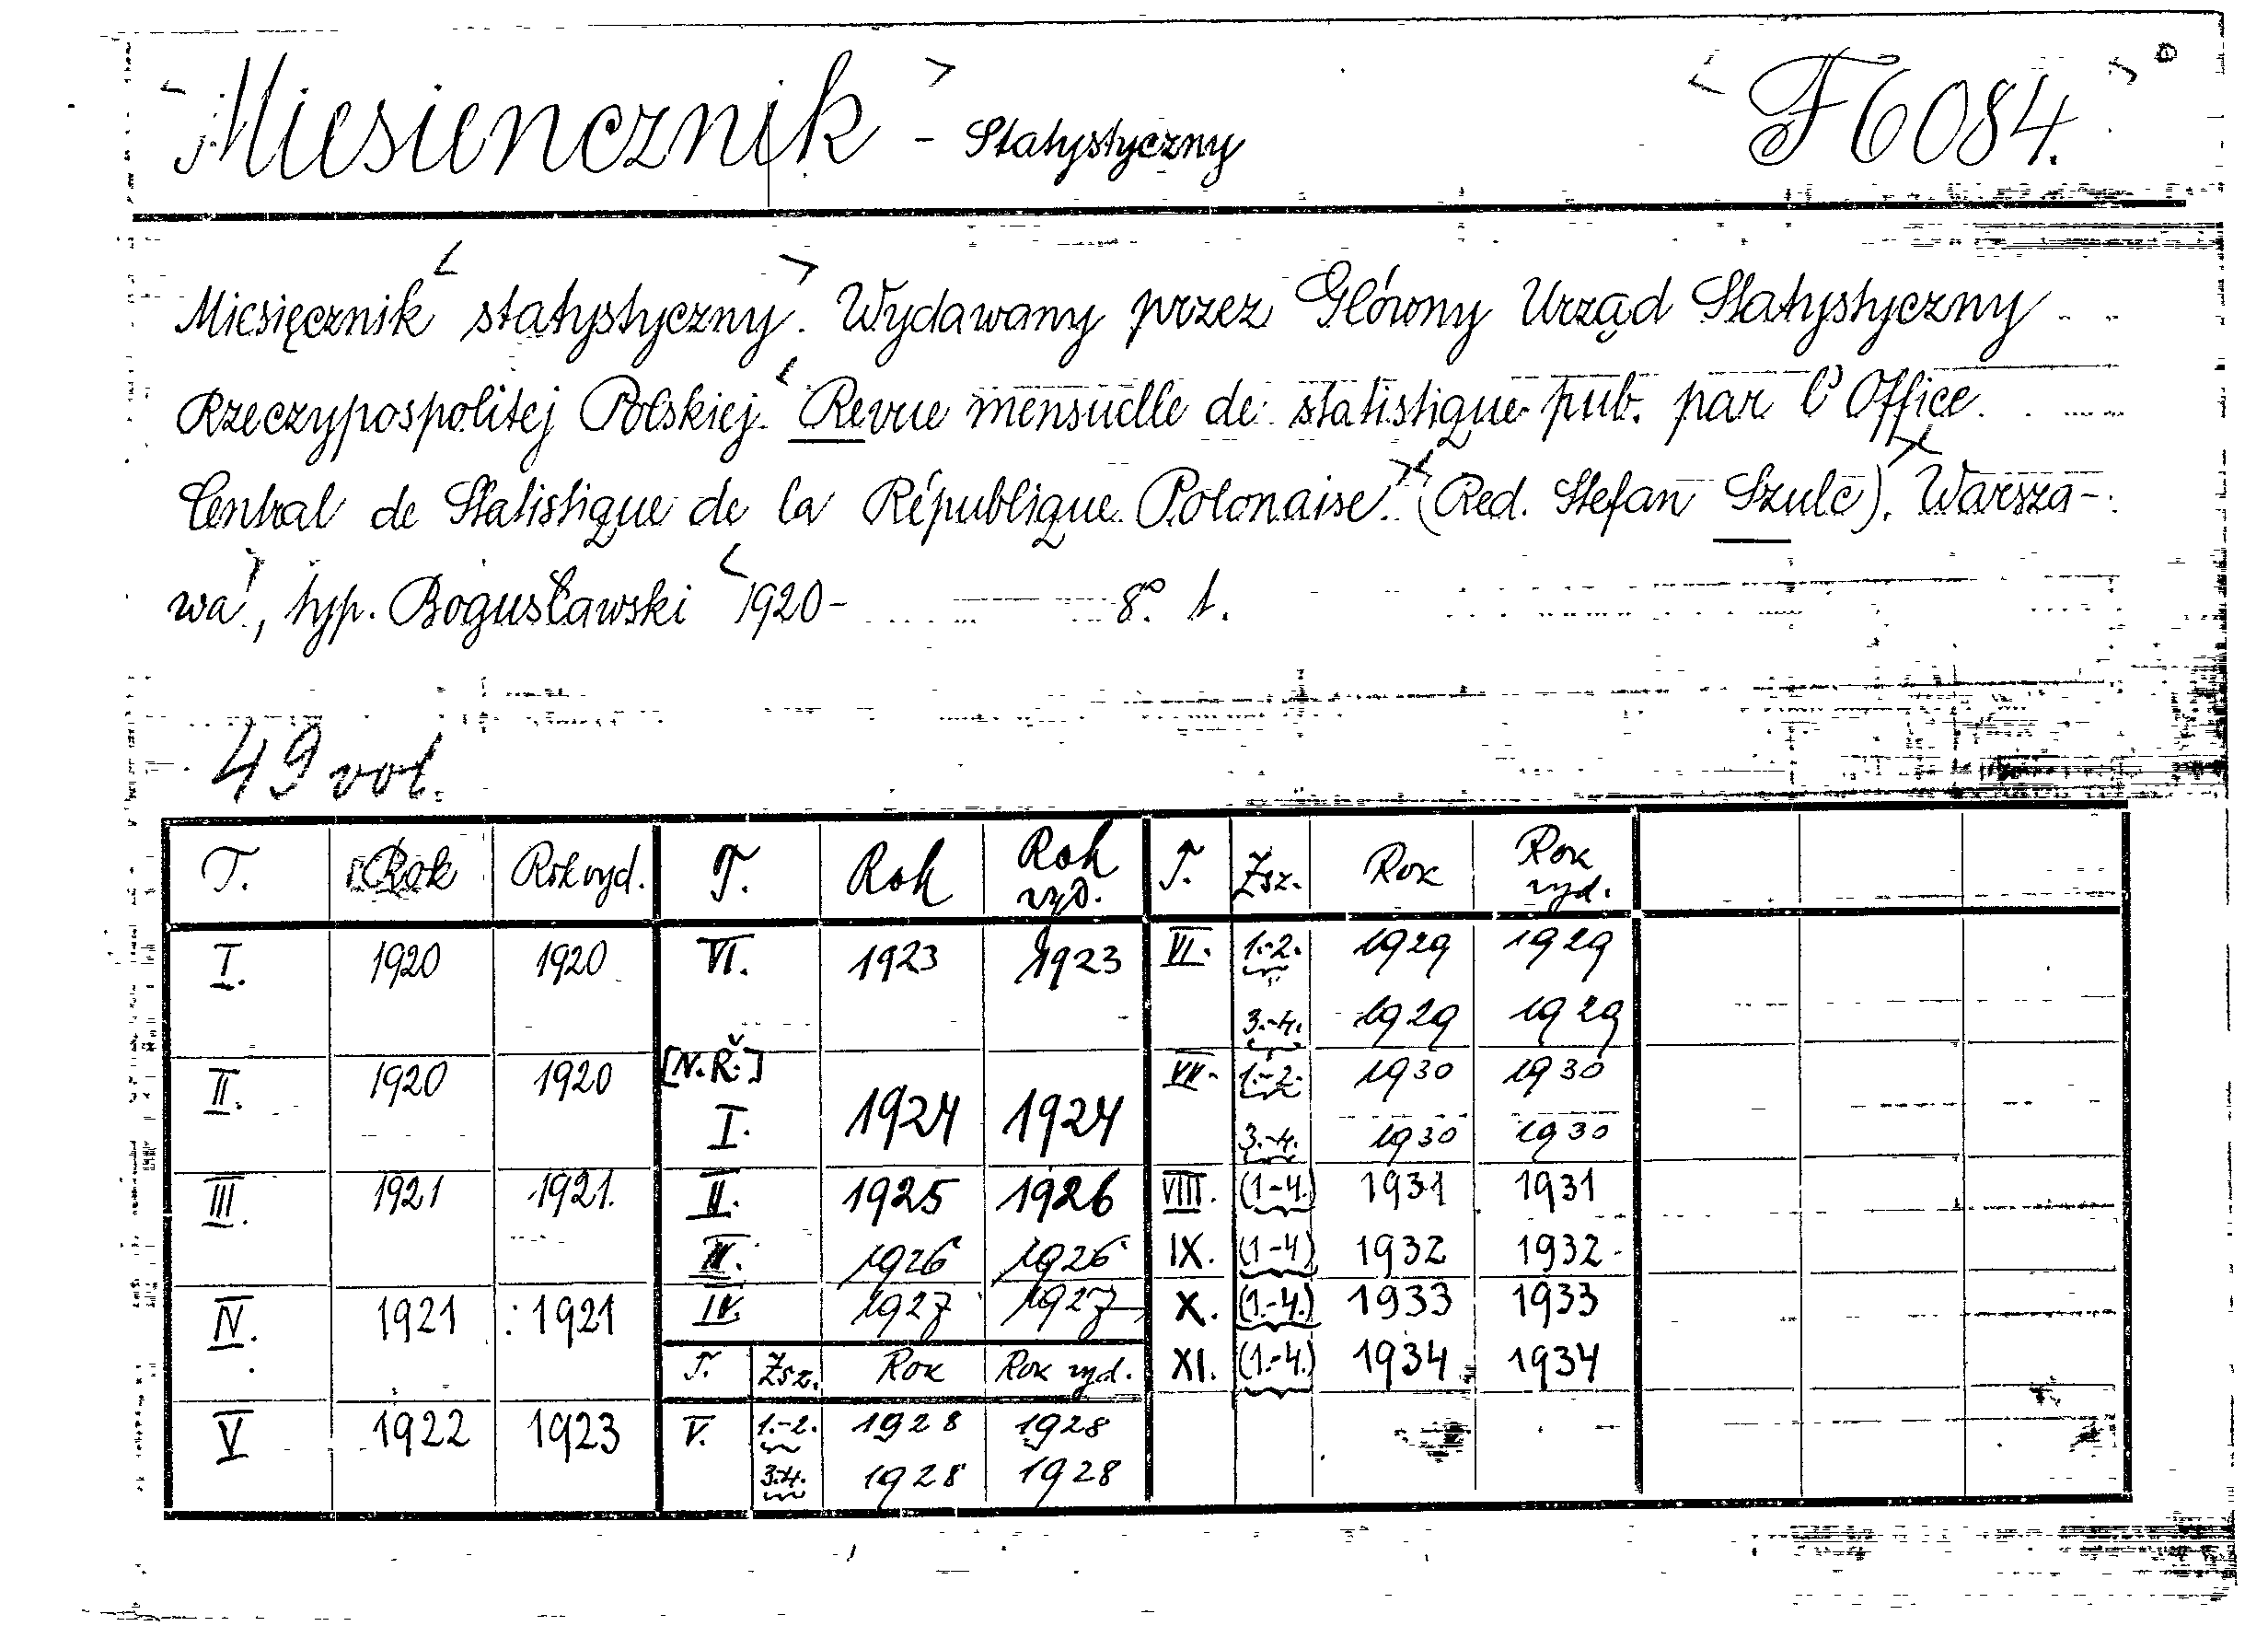 Miesiencznik - Statystyczny F 6084.
Miesięcznik statystyczny. Wydawany przez Główny Urząd Statystyczny
Rzeczypospolitej Polskiej. Revue mensuelle de statistique pub. par l'Office
Central de Statistique de la République Polonaise. (Red. Stefan Szulc). Warsza-
wa, typ. Bogusławski 1920- 8°. t.
49 vol.
T. Rok Rok vyd. T. Rok Rok vyd. T. Zsz. Rok Rok vyd.
I. 1920 1920 VI. 1923 1923 VI. 1.-2. 1929 1929
3.-4. 1929 1929
II. 1920 1920 [N.Ř.] VII. 1.-2. 1930 1930
I. 1924 1924 3.-4. 1930 1930
III. 1921 1921. II. 1925 1926 VIII. (1-4.) 1931 1931
III. 1926 1926 IX. (1-4) 1932 1932
IV. 1921 1921 IV. 1927 1927 X. (1.-4.) 1933 1933
T. Zsz. Rok Rok vyd. XI. (1.-4.) 1934 1934
V 1922 1923 V. 1.-2. 1928 1928
3.-4. 1928 1928